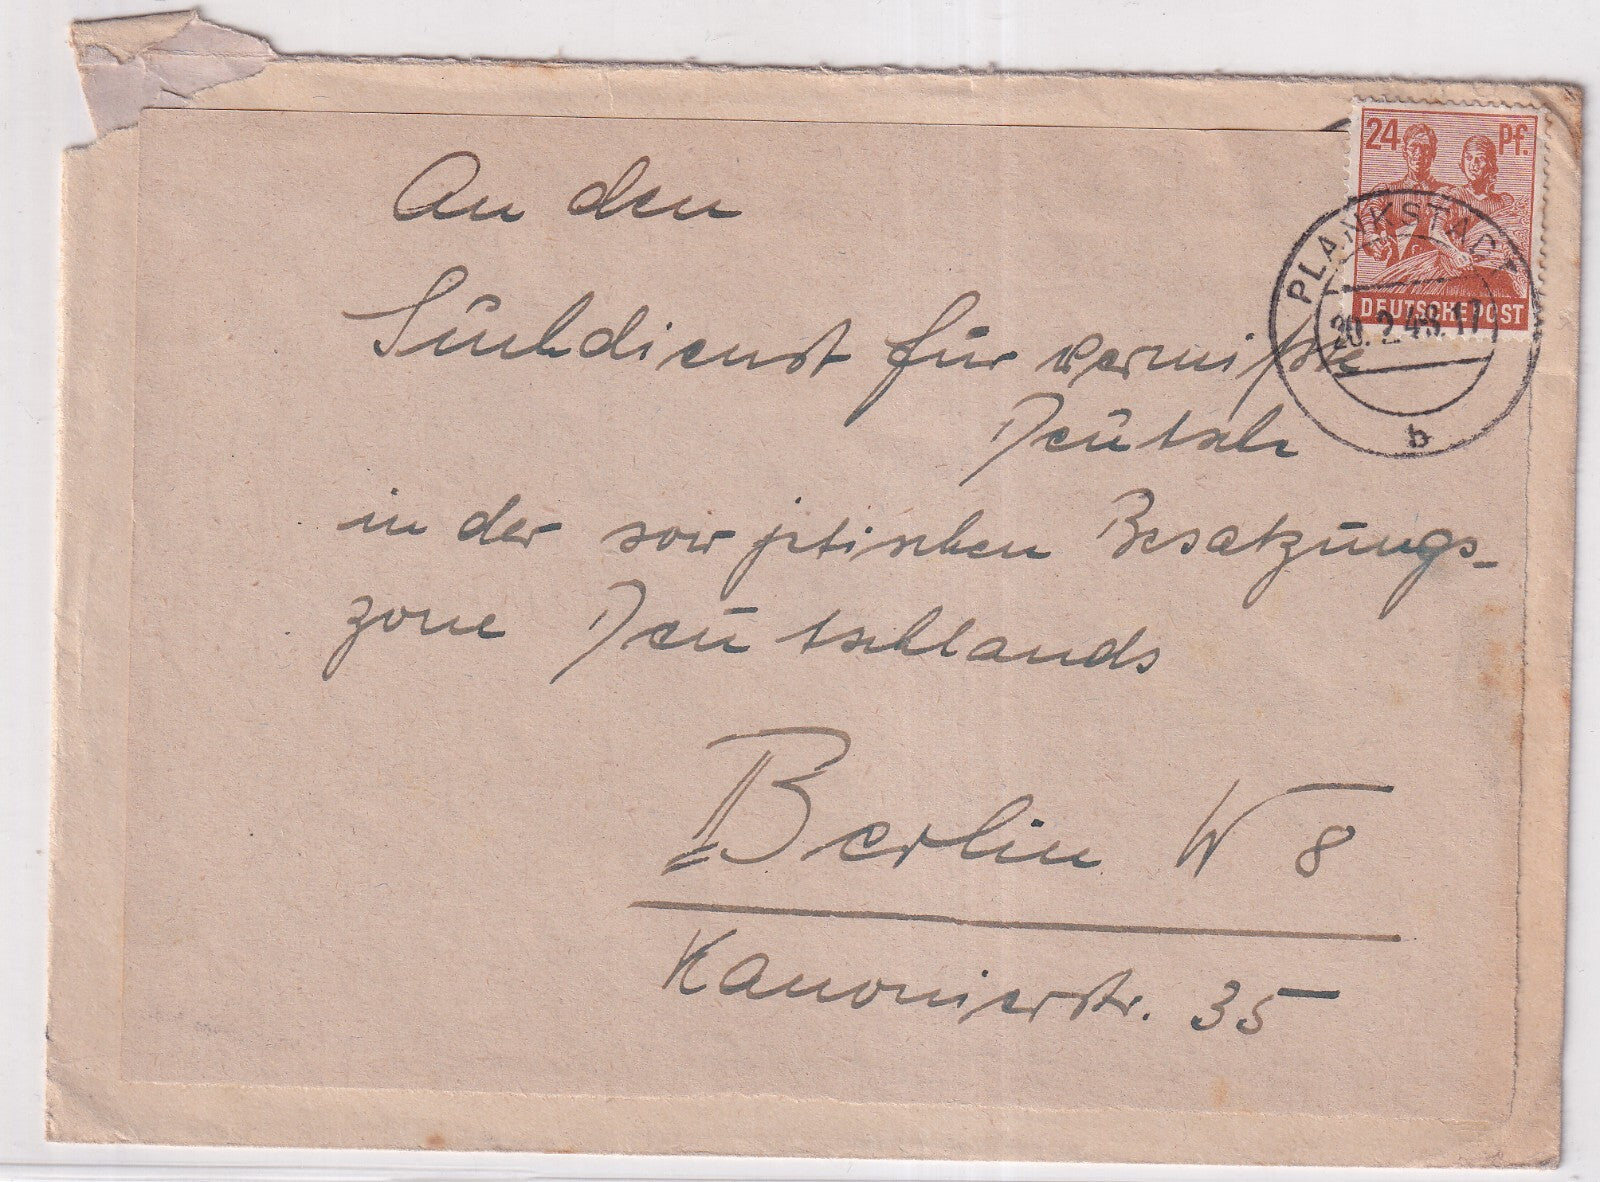 24 Pf.
DEUTSCHE POST
PLANKSTADT
20. 2. 48. 17
b
An den
Suchdienst für vermißte
Deutsche
in der sowjetischen Besatzungs-
zone Deutschlands
Berlin W 8
Kanonierstr. 35